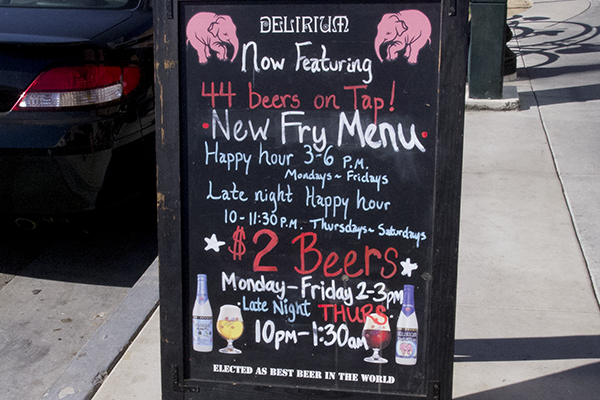 DELIRIUM
Now Featuring
44 beers on Tap!
New Fry Menu
Happy hour 3-6 P.M.
Mondays~Fridays
Late night Happy hour
10-11:30 P.M. Thursdays~Saturdays
$2 Beers
Monday-Friday 2-3pm
Late Night THURS.
10pm-1:30am
ELECTED AS BEST BEER IN THE WORLD